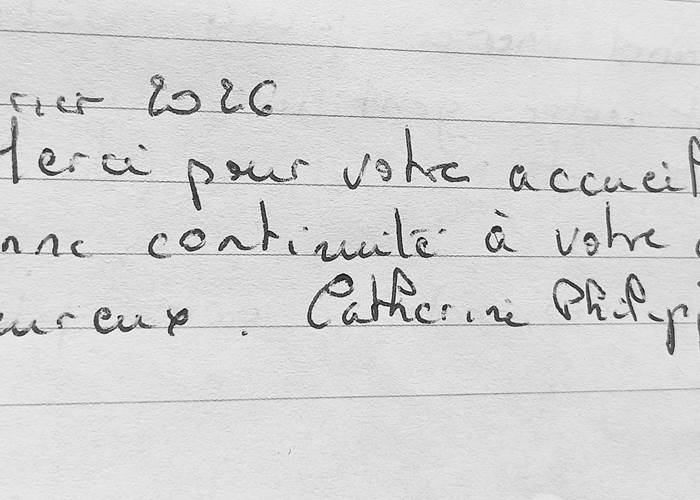 rier 2026
Merci pour votre accueil
nne continuité à votre
eureux. Catherine Philipp